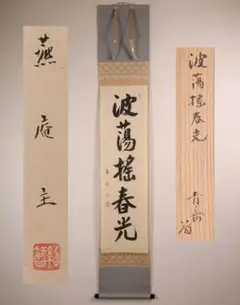 燕庵主
波蕩搖春光
波蕩搖春光